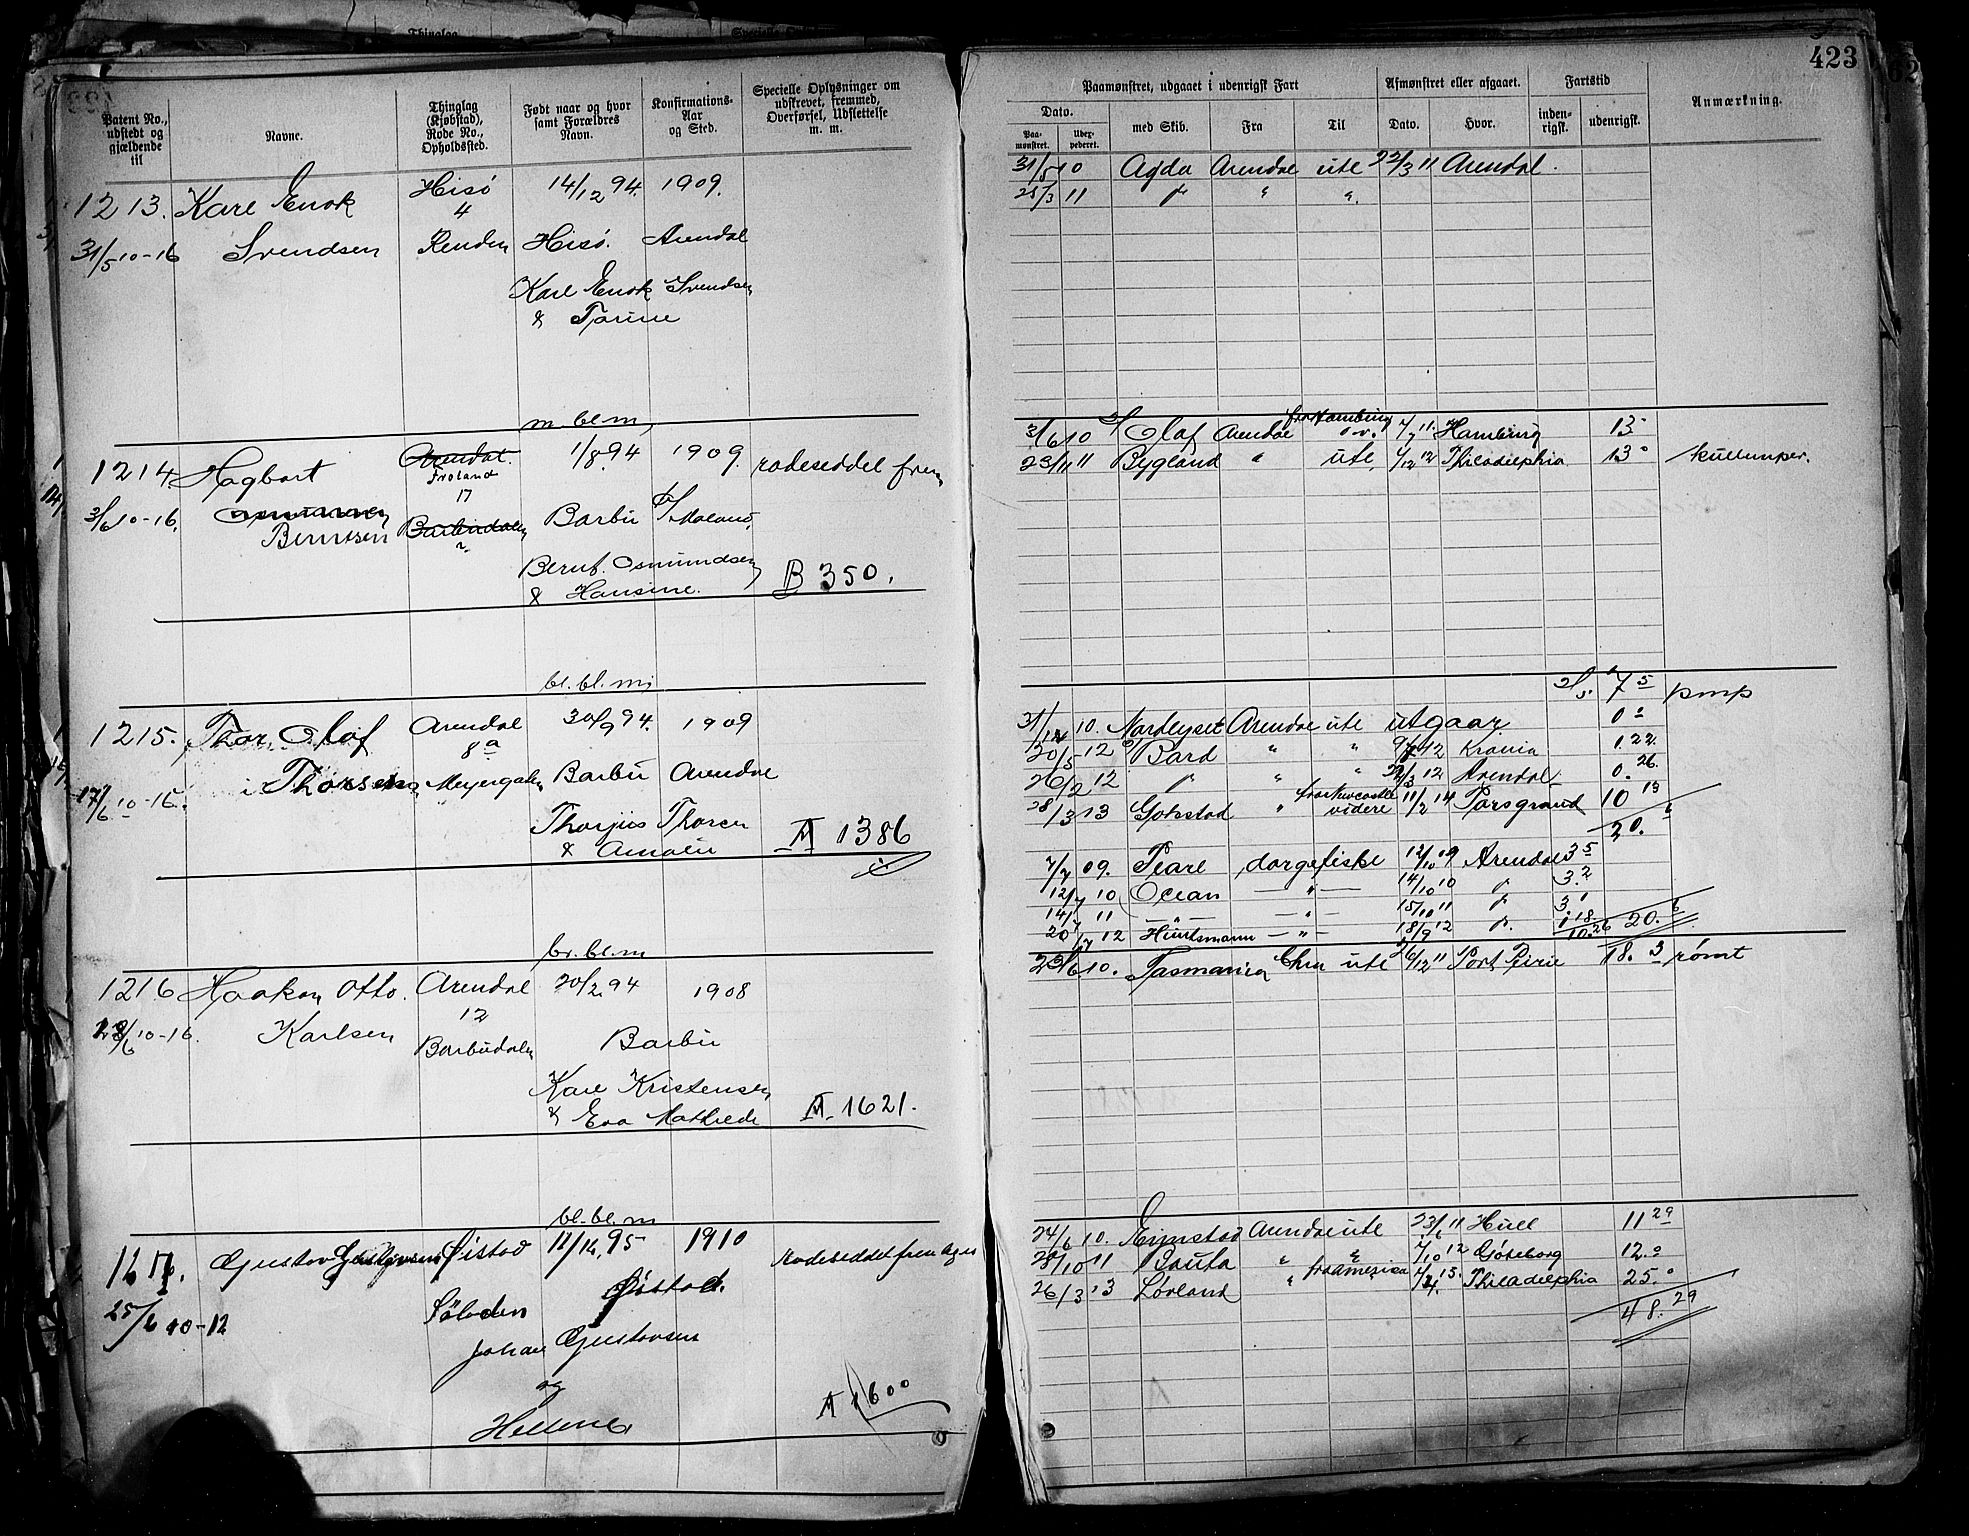 423
Patent No., udstedt og gjældende til
Navne.
Thinglag (Kjøbstad), Rode No., Opholdssted.
Født naar og hvor samt Forældres Navn.
Konfirmations-Aar og Sted.
Specielle Oplysninger om udskrevet, fremmed, Overførsel, Udslettelse m. m.
Paamønstret, udgaaet i udenrigsk Fart
Afmønstret eller afgaaet.
Fartstid
Anmærkning.
Dato.
Paa-mønstret.
med Skib.
Fra
Til
Dato.
Hvor.
inden-rigsk.
udenrigsk.
1213. Karl Enok Hisø 14/12 94. 1909.
4
31/5 10-16 Svendsen Renden Hisø. Arendal
Karl Enok Svendsen
& Torine
31/5 10 Agda Arendal ute 22/3 11 Arendal.
25/3 11 " " "
m. bl. m,
1214. Hagbart Arendal. 1/8 94 1909. rodeseddel frem
Froland
17
3/6 10-16. Barbudalen Barbu Ø/Moland.
Berntsen
Bernt. Osmundsen
& Hansine. B 350.
3/6 10 Olaf Arendal Hamburg 13
23/11 11 Bygland " ute 4/12 12 Philadelphia 13 0 kullemper.
bl. bl. m;
1215. Thor Olaf Arendal 30/9 94. 1909
8 a
17/6 10-16. Thorsen Meyergaten Barbu Arendal
Thorjus Thorsen
& Amalie A 1386
7 5 pmp
10. Nordlyset Arendal ute utgaar 0
20/5-12 Bard " " 12 Krania 1.22.
26/2 12 " " " 12 Arendal 0.26.
28/3 13 Gokstad " fra Newcastle videre 11/2 14 Porsgrund 10 13
20.
7/7 09. Pearl dorgefiske 12/10 09 Arendal 3 5
12/7 10 Ocean — " — 14/10 10 " 3.2
14/7 11 — " — — " — 15/10 11 " 3. 1
20/7 12 Huntsmann — " — 18/9 12 " 1 18
10.26 20. 6
br. bl. m
1216 Haakon Otto. Arendal 20/2 94 1908
12
23/6 10-16. Karlsen Barbudalen Barbu
Karl Kristensen
& Eva Mathilde A 1621.
23/6 10. Tasmania Chra ute 26/12 11 Port Pirie 18. 3 rømt
bl. bl. m
1217. Gustav Gustavsen Øistad 11/12 95 1910 Rodeseddel frem
25/6 10-12 Sølvden Øistad.
Johan Gustavsen
og
Hellene A 1600
24/6 10. Ejnstad Arendal ute 23/6 11 Hull 11 29
28/10 11 Bauta " " 7/10 12 Gøteborg 12. 0
26/3 13 Lørland " fra Amerika 15. Philadelphia 25. 0
48. 29